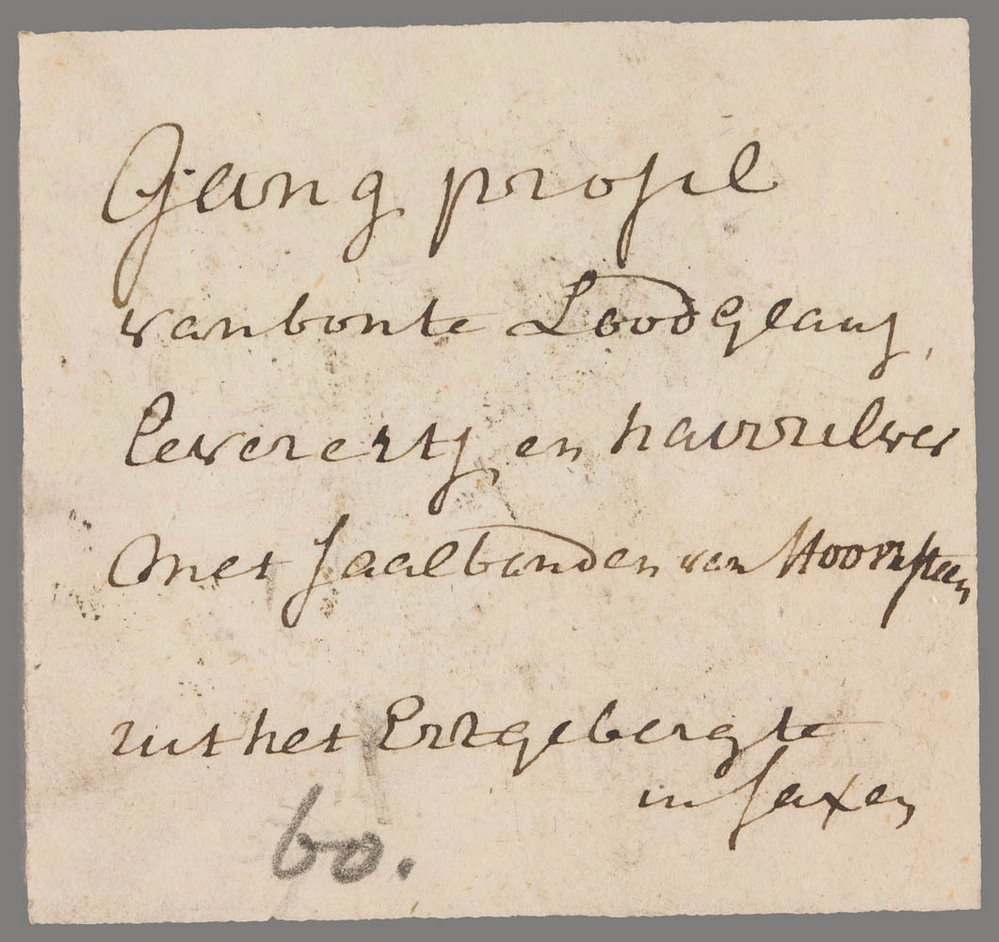 Gang profil
van bonte Loodglans,
Leverertz, en haarzilver
Met Saalbanden van Hoornsteen
uit het Ertzgebergte
in Saxen
60.